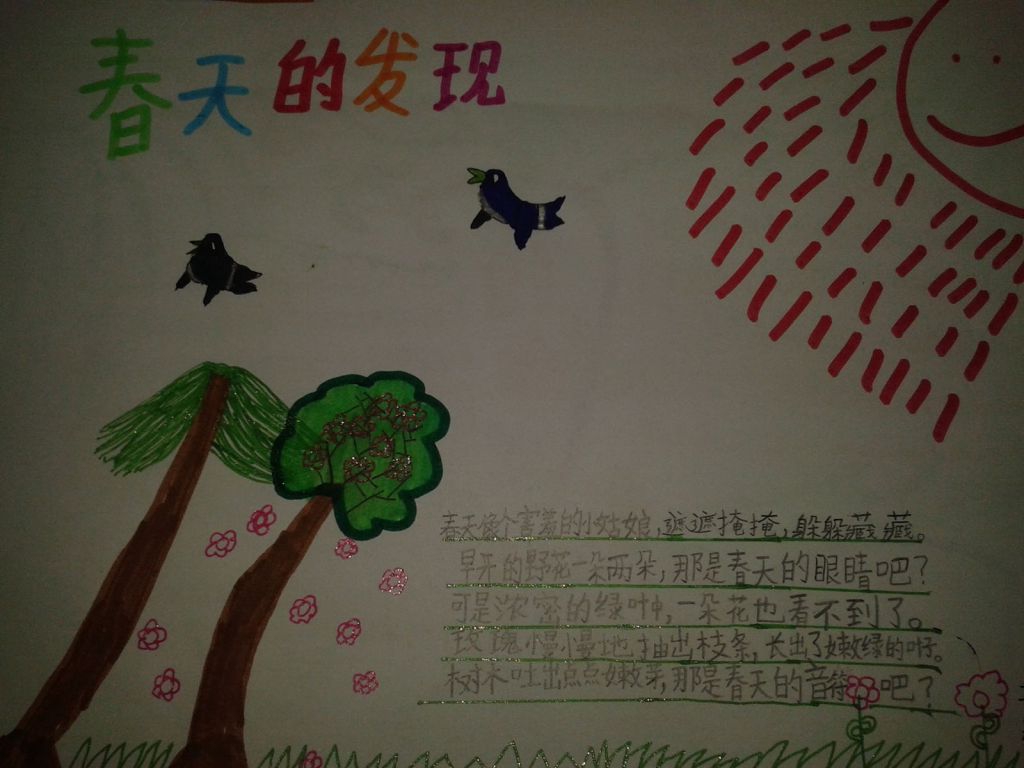 春天的发现
春天像个害羞的小姑娘,遮遮掩掩,躲躲藏藏。
早开的野花一朵两朵,那是春天的眼睛吧?
可是浓密的绿叶中,一朵花也看不到了。
玫瑰慢慢地抽出枝条,长出了嫩绿的叶子。
树木吐出点点嫩芽,那是春天的音符吧?